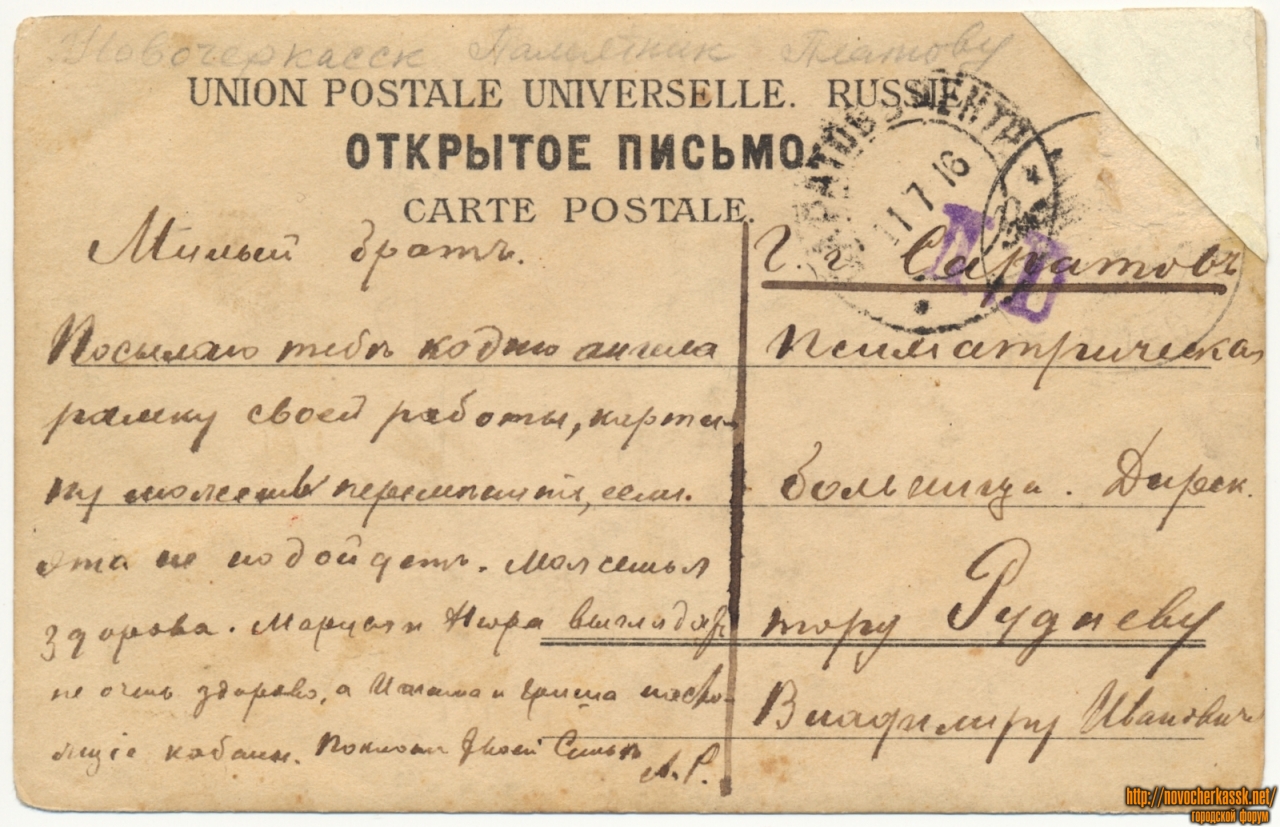 Новочеркасск Памятник Платову
UNION POSTALE UNIVERSELLE. RUSSIE
ОТКРЫТОЕ ПИСЬМО.
CARTE POSTALE.
САРАТОВЪ ЦЕНТР
11 7 16
Милый братъ.
Посылаю тебѣ ко дню ангела
рамку своей работы, карти-
ну можешь перемѣнить, если
эта не подойдетъ. Моя семья
здорова. Маруся и Нюра выглядят
не очень здорово, а и Гриша настоя-
щіе кабаны. Поклонъ твоей Семьѣ
А. Р.
Г. Саратовъ
Психіатрическая
больница. Дирек
тору Рудневу
Владимиру Иванович
http://novocherkassk.net/
городской форум